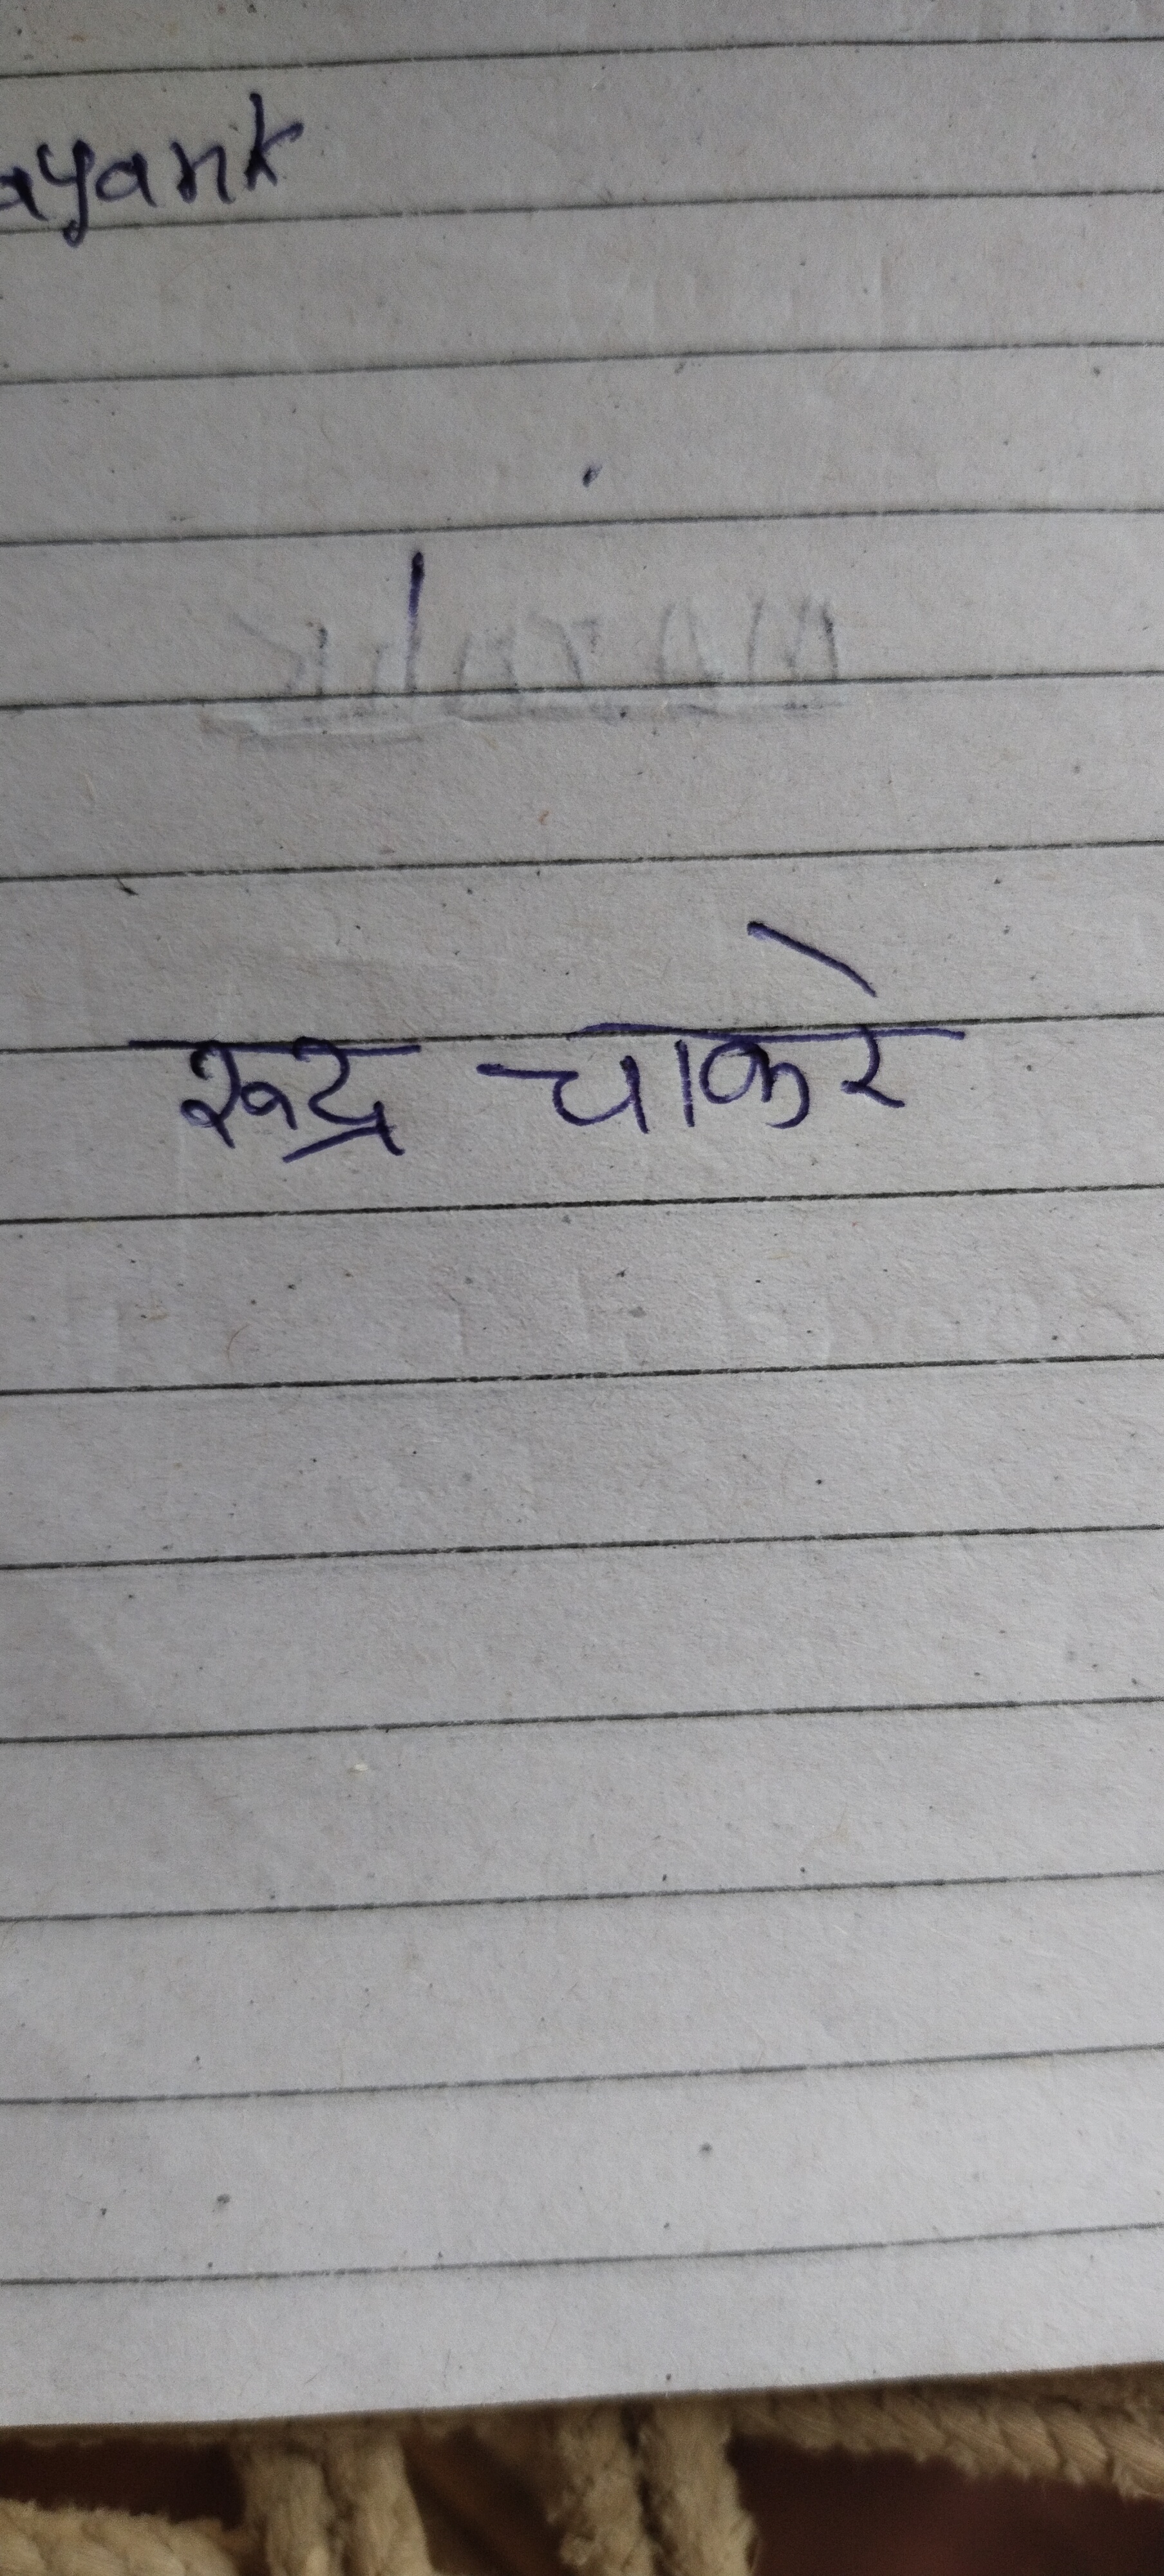 ayank
रुद्र चाकरे